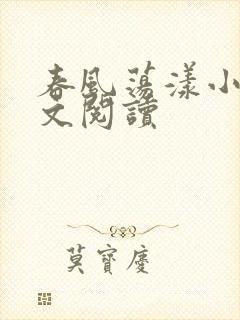 春風蕩漾小
文閱讀
莫寶慶